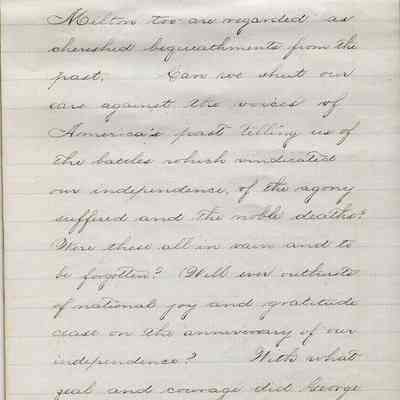 Milton too are regarded as
cherished bequeathments from the
past. Can we shut our
ears against the voices of
America's past telling us of
the battles which vindicated
our independence, of the agony
suffered and the noble deaths?
Were these all in vain and to
be forgotten? Will ever outbursts
of national joy and gratitude
cease on the anniversary of our
independence? With what
zeal and courage did George